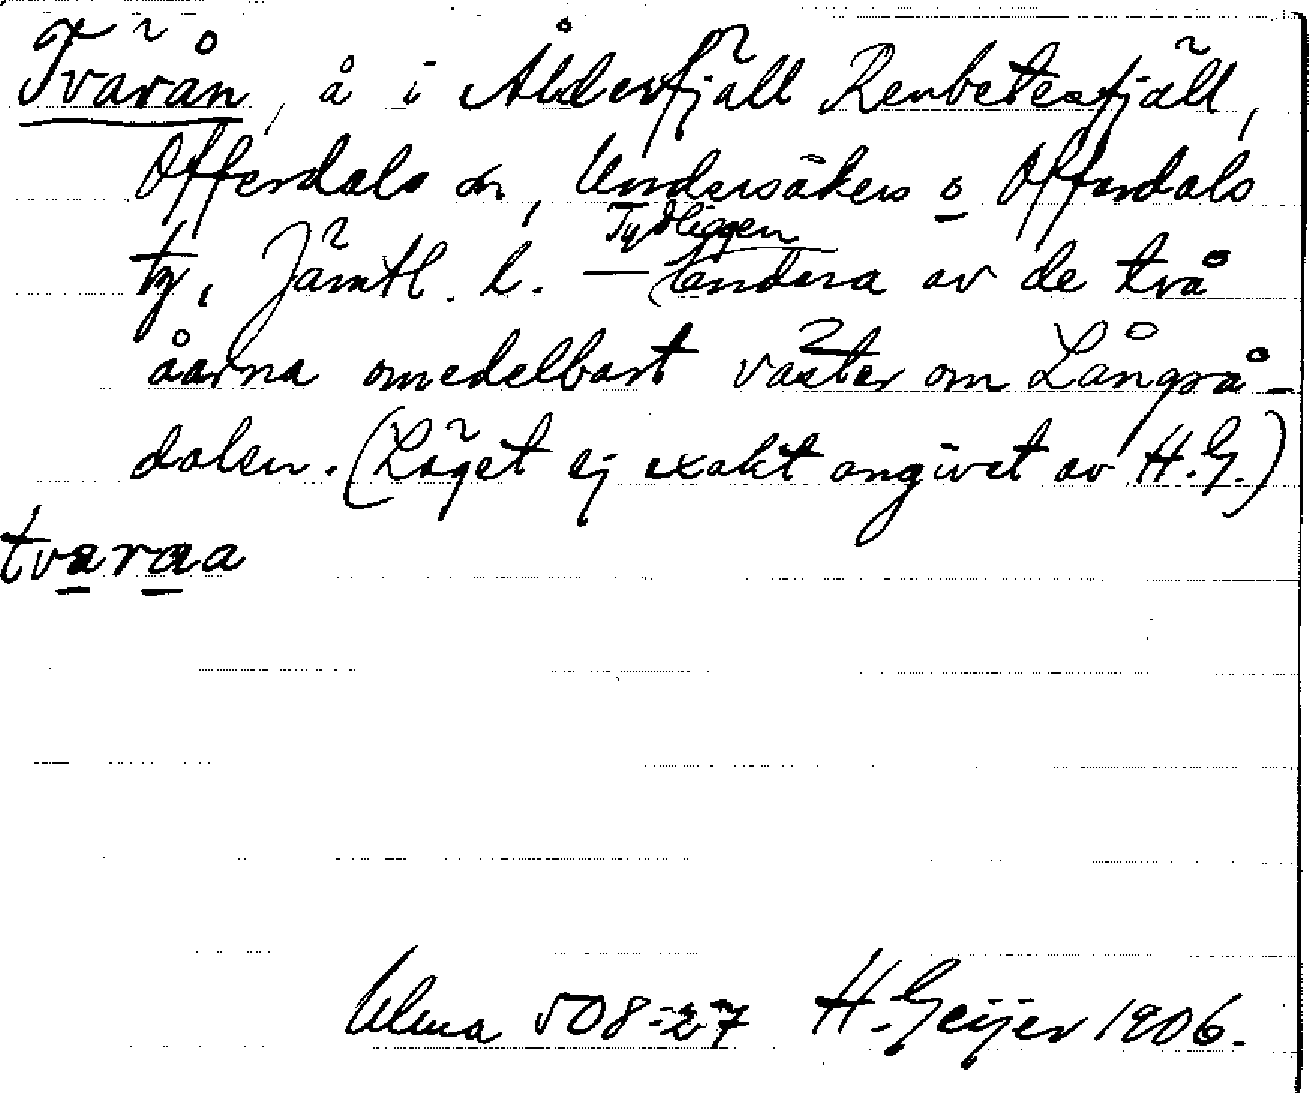 Tvärån, å i Ålderfjäll Renbetesfjäll,
Offerdals sn, Undersåkers o Offerdals
tg, Jämtl. l. — Tydligen endera av de två
åarna omedelbart väster om Långrå-
dalen. (Läget ej exakt angivet av H.G.)
tvaraa
Ulma 508:27 H. Geijer 1906.